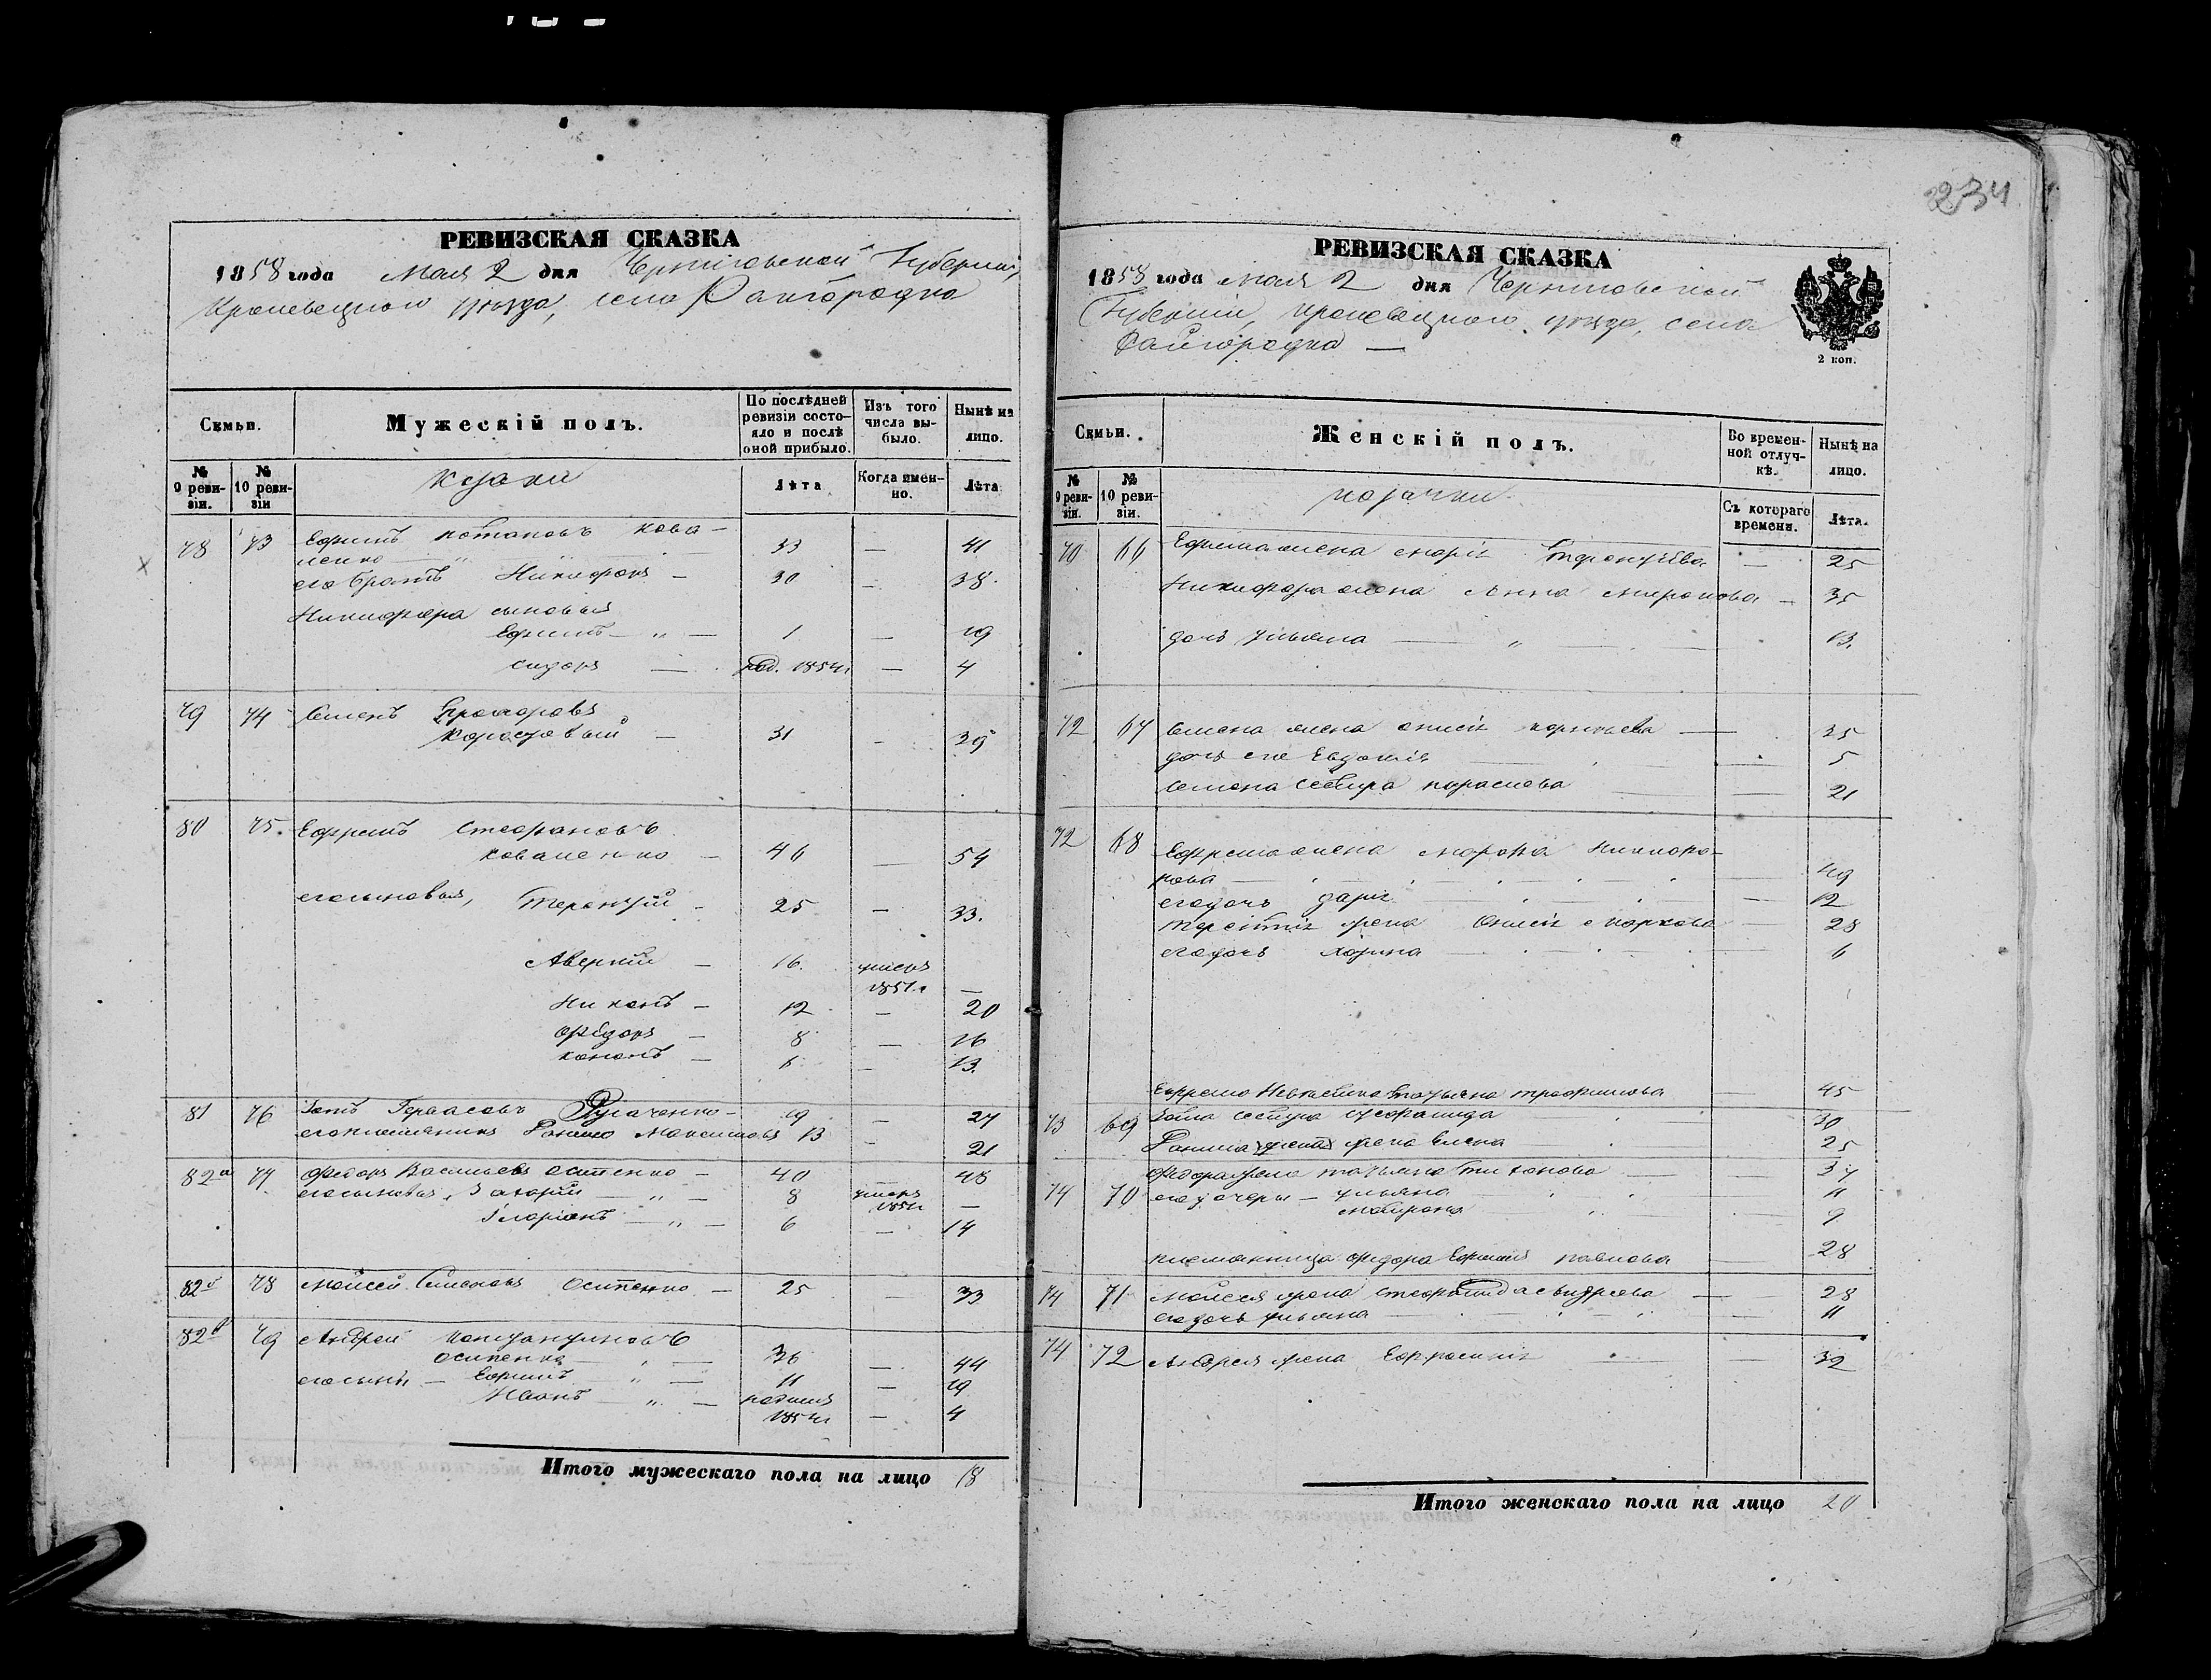 РЕВИЗСКАЯ СКАЗКА
1858 года Мая 2 дня Черниговской Губернии,
Кролевецкого уѣзда, села Райгородка
Семьи.
Мужескій полъ.
По послѣдней ревизіи состояло и послѣ оной прибыло.
Изъ того числа выбыло.
Нынѣ на лицо.
№ 9 ревизіи.
№ 10 ревизіи
Козаки
Лѣта
Когда именно.
Лѣта
78 73 Ефимъ Потаповъ Кова-
ленко 33 — 41
его братъ Никифоръ — 30 — 38
Никифора сыновья
Ефимъ — " — 1 — 19
Сидоръ — род. 1854г — 4
79 74 Семенъ
— 31 - 39
80 75. Ефремъ Стефановъ
Коваленко — 46 — 54
его сыновья, Терентій - 25 — 33.
Аверкій — 16. умеръ
1851г —
Никонъ — 12 — 20
Ѳедоръ — 8 — 16
Кононъ — — 13.
81 76 Зотъ Гервасовъ — 19 — 27
его племянникъ Максимовъ 13 - 21
82а 77 Федоръ Васильевъ Осипенко — 40 48
его сыновья, Захарій — " — 8 умеръ
—
Иларіонъ — " — 6 — 14
82б 78 Мойсей Осипенко — 25 33
82в 79 Андрей Константиновъ
Осипенко — 36 — 44
его сыны — Ефимъ " — 11 — 19
Иванъ — " — родился
1854г — 4
Итого мужескаго пола на лицо 18
234
РЕВИЗСКАЯ СКАЗКА
1858 года Мая 2 дня Черниговской
Губерніи, Кролевецкого уѣзда, села
Райгородка —
2 коп.
Семьи.
Женскій полъ.
Во временной отлучкѣ.
Нынѣ на лицо.
№ 9 ревизіи.
№ 10 ревизіи.
козачки
Съ котораго времени.
Лѣта.
70 66 Ефима жена Марія Терентіева — 25
Никифора жена Анна Миронова — 35
дочь Ульяна — " — 13.
72 67 Семена жена Анисія — 35
дочь его Евдокія — 5
Семена сестра — 21
72 68 Ефрема жена Никифо-
рова — 49
его дочь Дарія — 12
Терентія жена Анисія Маркова — 28
его дочь — 6
Ефрема невѣстка Татьяна Трофимова — 45
73 69 Зота сестра 30
жена Елена — 25
Федора жена Татьяна Тихонова — 37
74 70 его дочери — Ульяна 11
Матрона — 9
племянница Федора Павлова — 28
74 71 Мойсея жена Стефанида Андреева — 28
его дочь Ульяна — 11
74 72 Андрея жена Ефросинія — 32
Итого женскаго пола на лицо 20